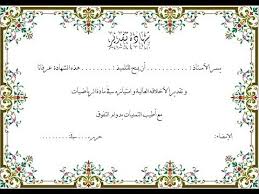 شهادة تقدير
يسر الأستاذ: .......... أن يمنح التلميذ: .......... هذه الشهادة عرفانا
وتقديرا لأخلاقه العالية و امتيازه في مادة الرياضيات
مع أطيب التمنيات بدوام التفوق
الإمضاء: حرر بـ: .......... في ..........